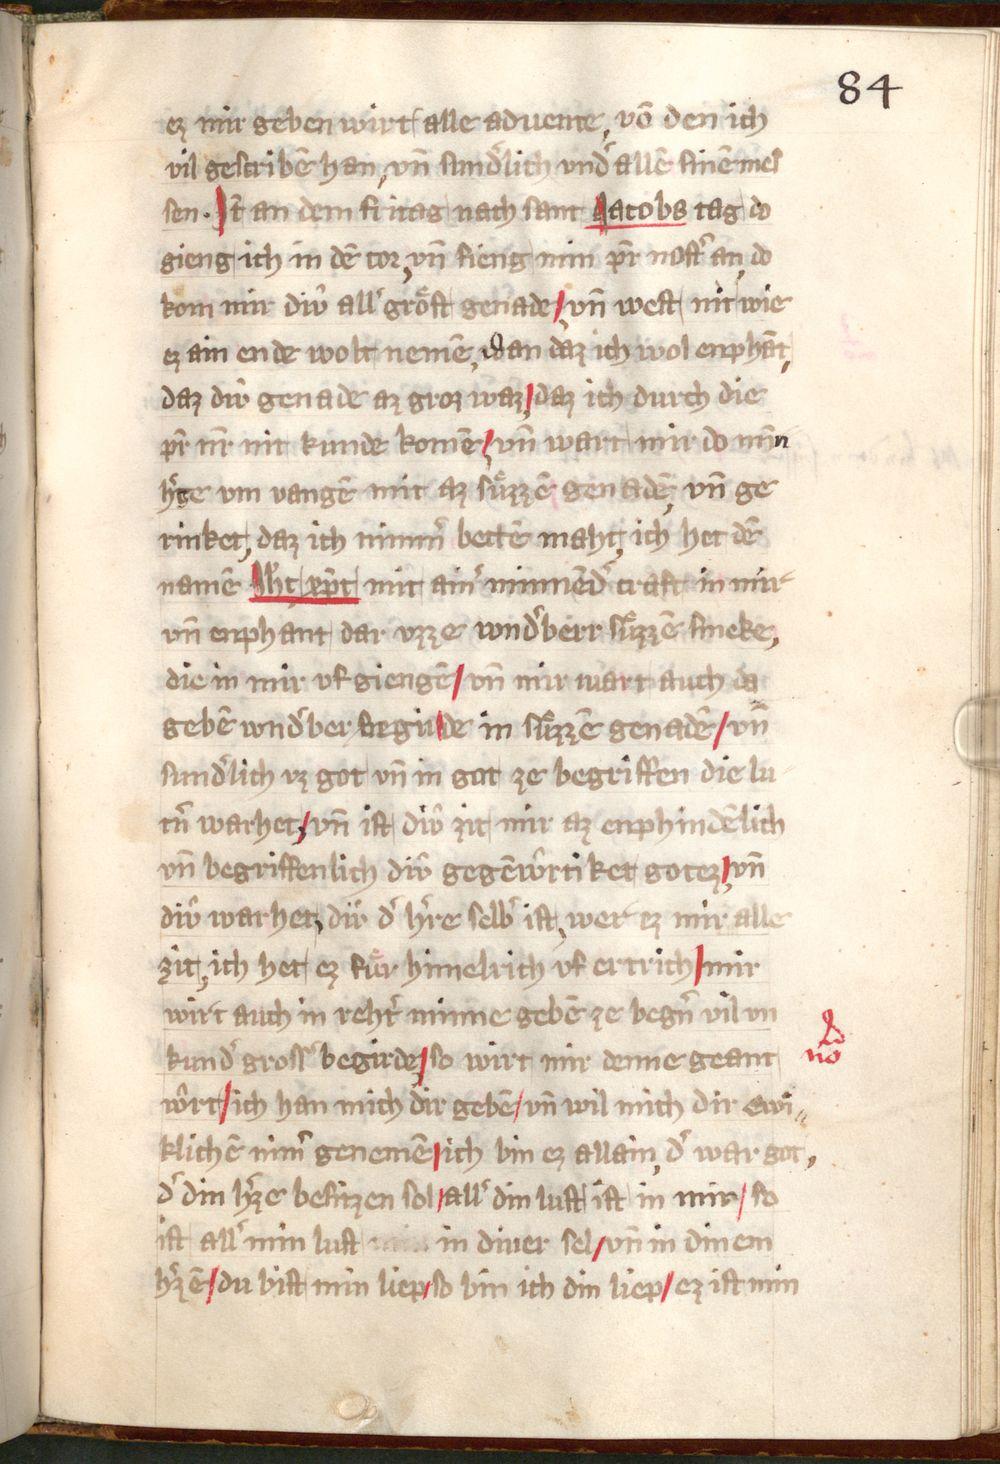 84
ez mir geben wirt alle aduente, võ den ich
vil gescribẽ han, vñ sund͛lich vnd͛ allẽ sinẽ mes
sen. Jt̃ an dem fritag nach sant Jacobs tag do
gieng ich in dẽ cor, vñ fieng min pr̃ nost͛ an, do
kom mir diṽ all͛ grőst genade / vñ west nit wie
ez ain ende wolt nemẽ, wan daz ich wol enphãt,
daz diṽ genade az groz waz, / daz ich durch die
pr̃ nr̃ nit kunde komẽ, / vñ wart mir do min
h͛tze vm vangẽ mit az sůzzẽ genadẽ, vñ ge
rinket, daz ich nimm͛ bettẽ maht, ich het dẽ
namẽ Jhc̃ xp̃c mit ain͛ minnẽd͛ craft in mir
vñ enphant dar vzze wnd͛berr sůzzẽ smeke,
die in mir vf giengẽ / vñ mir wart auch da
gebẽ wnd͛ber begirde in sůzzẽ genadẽ / vñ
sund͛lich vz got vñ in got ze begriffen die lu
t͛n warhet, / vñ ist diṽ zit mir az enphindẽlich
vñ begriffenlich diṽ gegẽwṽrtiket gotez, / vñ
diṽ warhet, diṽ d͛ h͛re selb͛ ist, wer ez mir alle
zit, ich het ez fůr himelrich vf ertrich / mir
wirt auch in reht͛ minne gebẽ ze beg͛n vil vn
kund͛ gross͛ begirde, / so wirt mir denne geant
wṽrt / ich han mich dir gebẽ / vñ wil mich dir ewi„
klichẽ nim͛ genemẽ / ich bin ez allain, d͛ war got,
d͛ din h͛ze besitzen sol / all͛ din lust ist in mir / so
ist all͛ min lust in diner sel / vñ in dinem
h͛zẽ / du bist min liep / so bin ich din liep / ez ist min
no